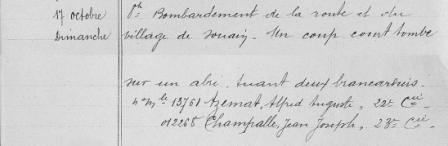 17 octobre
Dimanche
8h Bombardement de la route et du
village de Souain. Un coup court tombe
sur un abri, tuant deux brancardiers.
n° Mle 13761 Azemat, Alfred Auguste, 22e Cie
012268 Champalle, Jean Joseph, 23e Cie